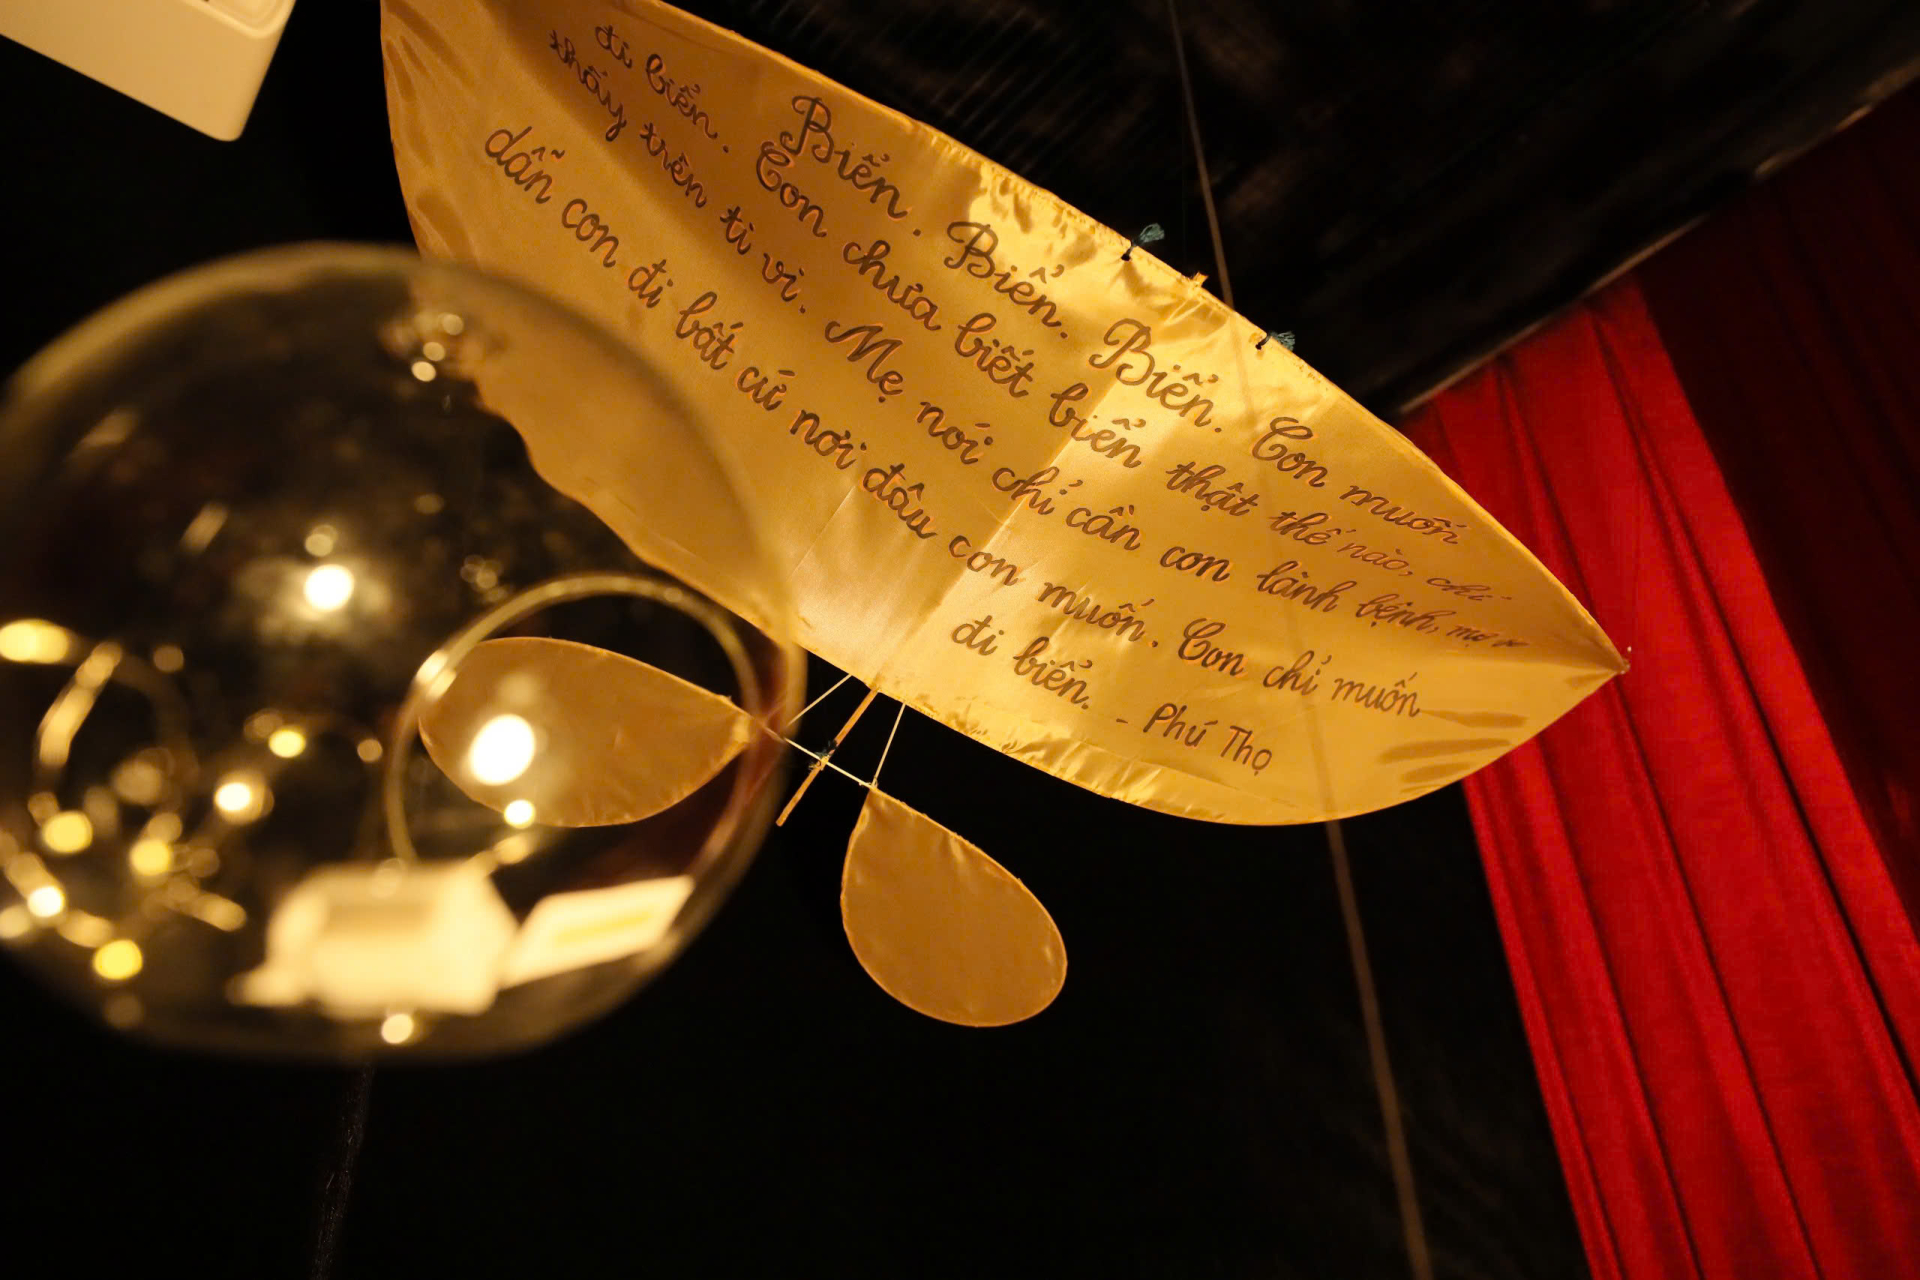 Biển. Biển. Biển. Con muốn
đi biển. Con chưa biết biển thật thế nào, chỉ
thấy trên ti vi. Mẹ nói chỉ cần con lành bệnh, mẹ sẽ
dẫn con đi bất cứ nơi đâu con muốn. Con chỉ muốn
đi biển. - Phú Thọ